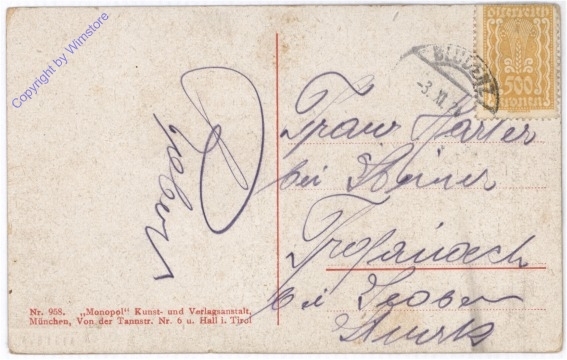 Copyright by Wimstore.
BLUDENZ
-3. XI. 24
österreich
500
kronen
Frau Harter
bei Steiner
Trofaiach
bei Leoben
Nr. 958. „Monopol“ Kunst- und Verlagsanstalt,
München, Von der Tannstr. Nr. 6 u. Hall i. Tirol